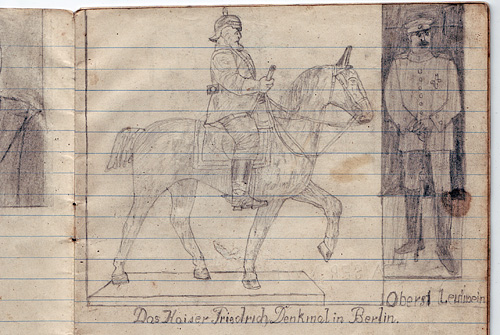 Oberst Leutwein
Das Kaiser Friedrich Denkmal in Berlin.